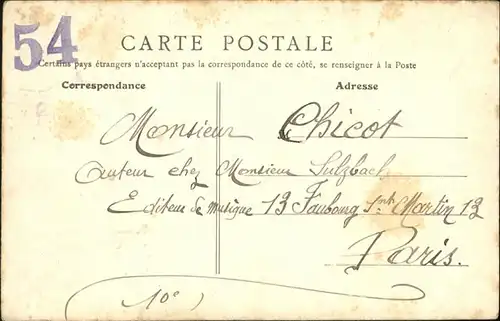 54
CARTE POSTALE
Certains pays étrangers n'acceptant pas la correspondance de ce côté, se renseigner à la Poste
Correspondance
Adresse
Monsieur Chicot
auteur chez Monsieur Sulzbach
Editeur de musique 13 Faubourg Snt Martin 13
Paris.
10e